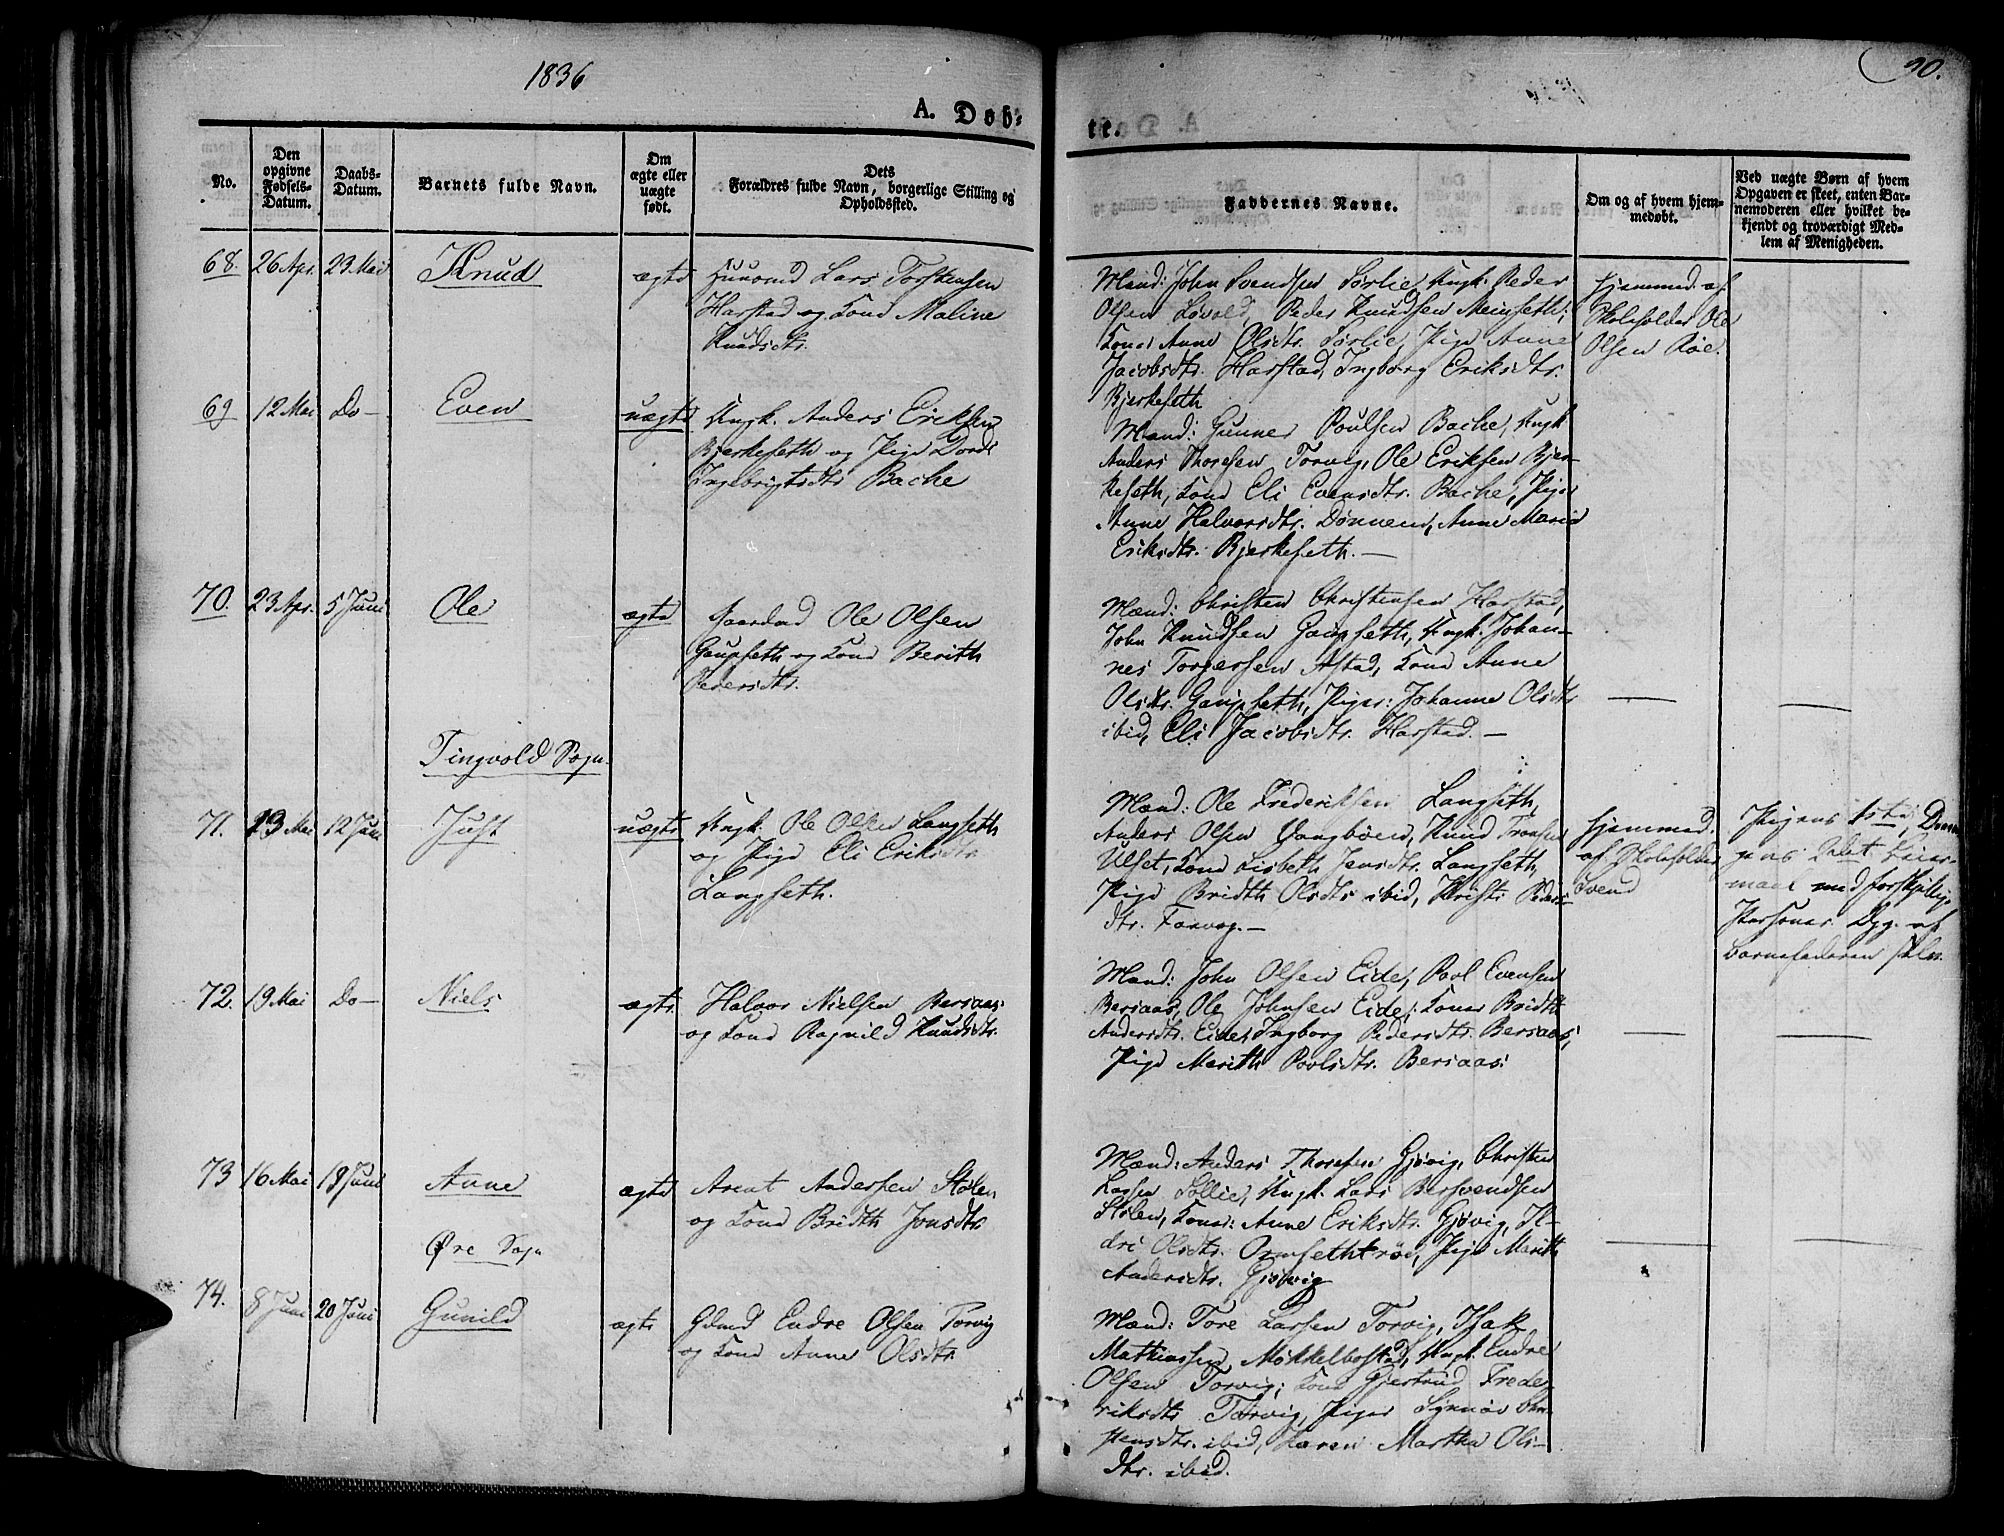 1836
90.
A. Døb-
te.
No.
Den
opgivne
Fødsels-
Datum.
Daabs-
Datum.
Barnets fulde Navn.
Om
ægte eller
uægte
født.
Dets
Forældres fulde Navn, borgerlige Stilling og
Opholdssted.
Faddernes Navne.
Om og af hvem hjem-
medøbt.
Ved uægte Børn af hvem
Opgaven er skeet, enten Bar-
nemoderen eller hvilket be-
kjendt og troværdigt Med-
lem af Menigheden.
68. 26 Apr. 23 Mai Knud ægte Huusmd Lars Torstensen
Harstad og Kone Maline
Knudsdtr.
Mænd: John Svendsen Sørlie, Ungk: Peder
Olsen Løvold, Peder Knudsen Meinseth;
Koner Anne Olsdtr. Sørlie, Pige Anne
Jacobsdtr. Harstad, Ingborg Eriksdtr.
Bjerkeseth
Hjemmed. af
Skoleholder Ole
Olsen Røe.
69 12 Mai Do- Even uægte Ungk. Anders Eriksen
Bjerkeseth og Pige Dordi
Ingebrigtsdtr Bache
Mænd: Gunner Poulsen Bache, Ungk
Anders Thoresen Torvig, Ole Eriksen Bjer-
keseth, Kone Eli Evensdtr. Bache, Piger
Anne Halvorsdtr. Dønnem, Anne Marie
Eriksdtr. Bjerkeseth. -
70. 23 Apr. 5 Juni Ole ægte Gaardmd Ole Olsen
Gaupseth og Kone Berith
Pedersdtr.
Mænd: Christen Christensen Harstad,
John Knudsen Gaupseth, Ungk. Johan-
nes Torgersen Astad, Kone Anne
Olsdtr. Gaupseth, Piger: Johanne Olsdtr
ibid, Eli Jacobsdtr. Harstad. -
Tingvold Sogn
71. 13 Mai 12 Juni Just uægte Ungk. Ole Olsen Langseth
og Pige Eli Eriksdtr
Langseth.
Mænd: Ole Frederiksen Langseth,
Anders Olsen Vangbøen, Knud Tronsen
Ulset, Kone Lisbeth Jensdtr. Langseth,
Pige Bridth Olsdtr ibid, Kristi Peders-
dtr. Torvog. -
Hjemmed.
af Skoleholder
Svend
Pigens 1ste,
2det Leier-
maal med forskjellig
Personer. Opg. af
Barnefaderen selv.
72. 19 Mai Do- Niels ægte Halvor Nielsen Bersaas
og Kone Ragnild Knudsdtr.
Mænd: John Olsen Eide, Povl Evensen
Bersaas, Ole Johnsen Eide; Koner Bridth
Andersdtr. Eide, Ingborg Pedersdtr. Bersaas,
Pige Marith Povlsdtr. Bersaas.
73 16 Mai 19 Juni Anne ægte Arent Andersen Stølen
og Kone Bridth Jonsdtr
Mænd: Anders Thoresen Gjøvig, Christen
Larsen Sollie, Ungk. Lars Bersvendsen
Stølen, Koner: Anne Eriksdtr. Gjøvig, Il-
dri Olsdtr. Ormsethtrøe, Pige Marith
Andersdtr. Gjøvig
Øre Sogn
74. 8 Juni 20 Juni Gunild ægte Gdmd Endre Olsen Torvig
og Kone Anne Olsdtr.
Mænd: Tore Larsen Torvig, Isak
Mathiassen Møkkelbostad, Ungk. Endre
Olsen Torvig; Kone Gjertrud Frede-
riksdtr Torvig, Piger Synnøv
stensdtr. ibid, Karen Martha Ols-
dtr. ibid.